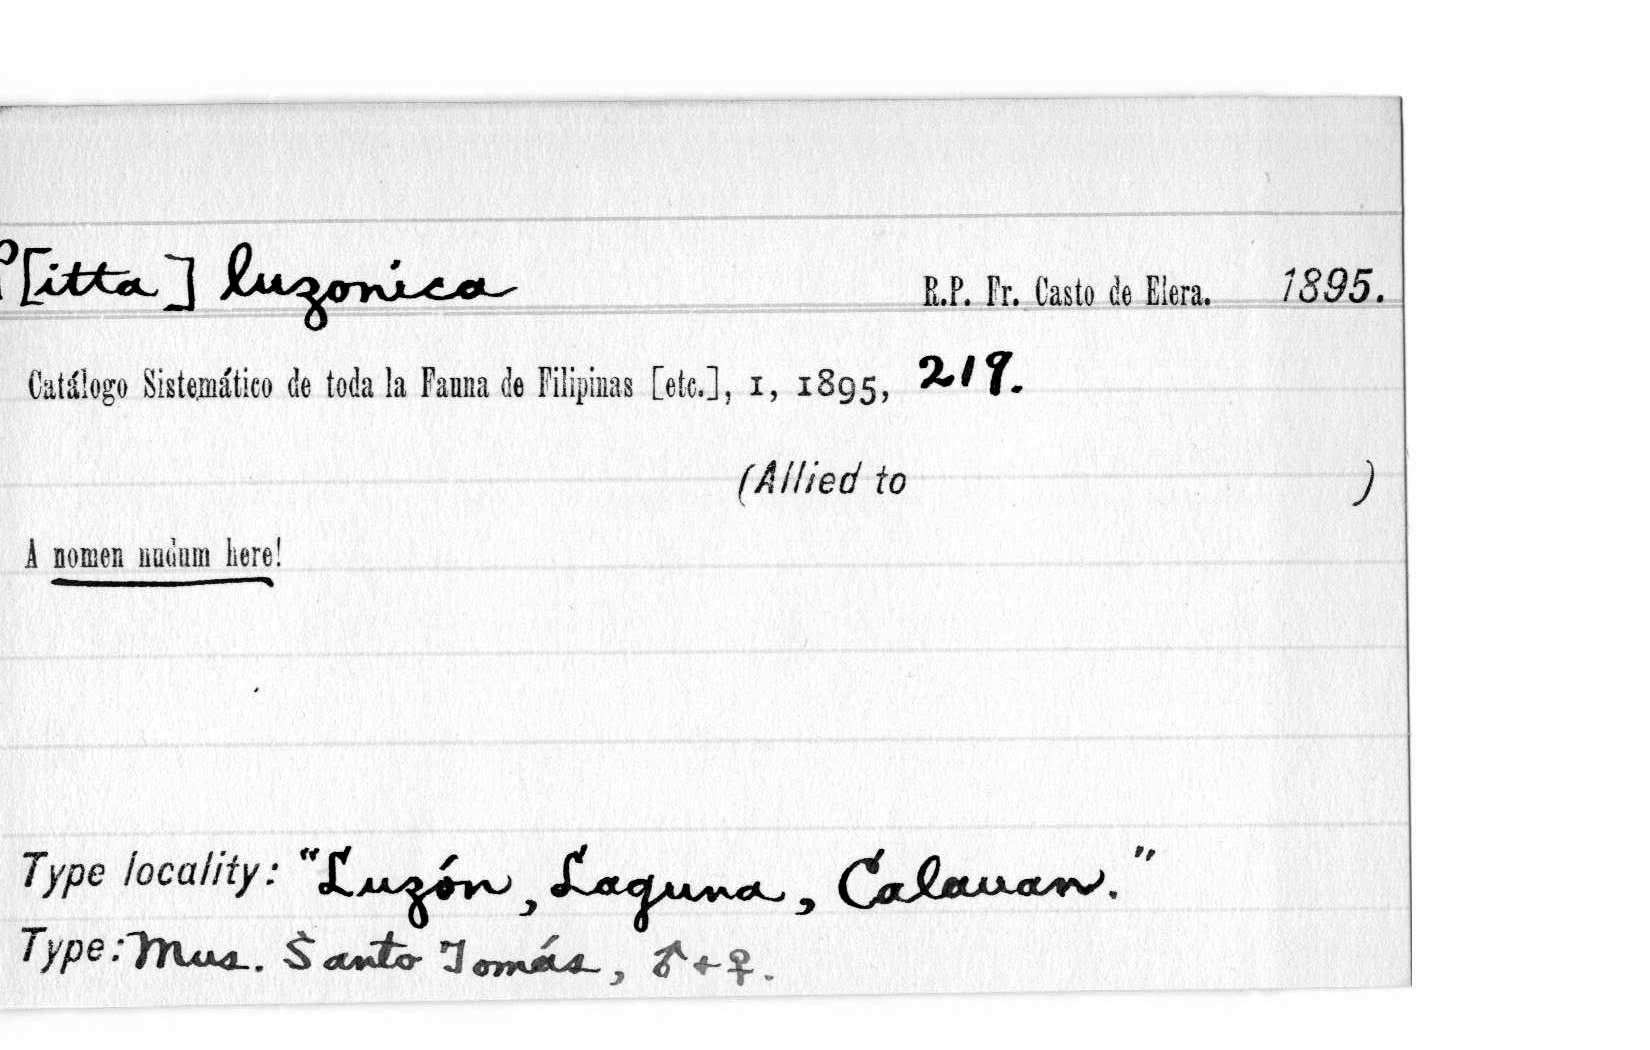 P[itta] luzonica R.P. Fr. Casto de Elera. 1895.
Catálogo Sistemático de toda la Fauna de Filipinas [etc.], 1, 1895, 219.
(Allied to )
A nomen nudum here!
Type locality: "Luzón, Laguna, Calauan."
Type: Mus. Santo Tomás, ♂ + ♀.